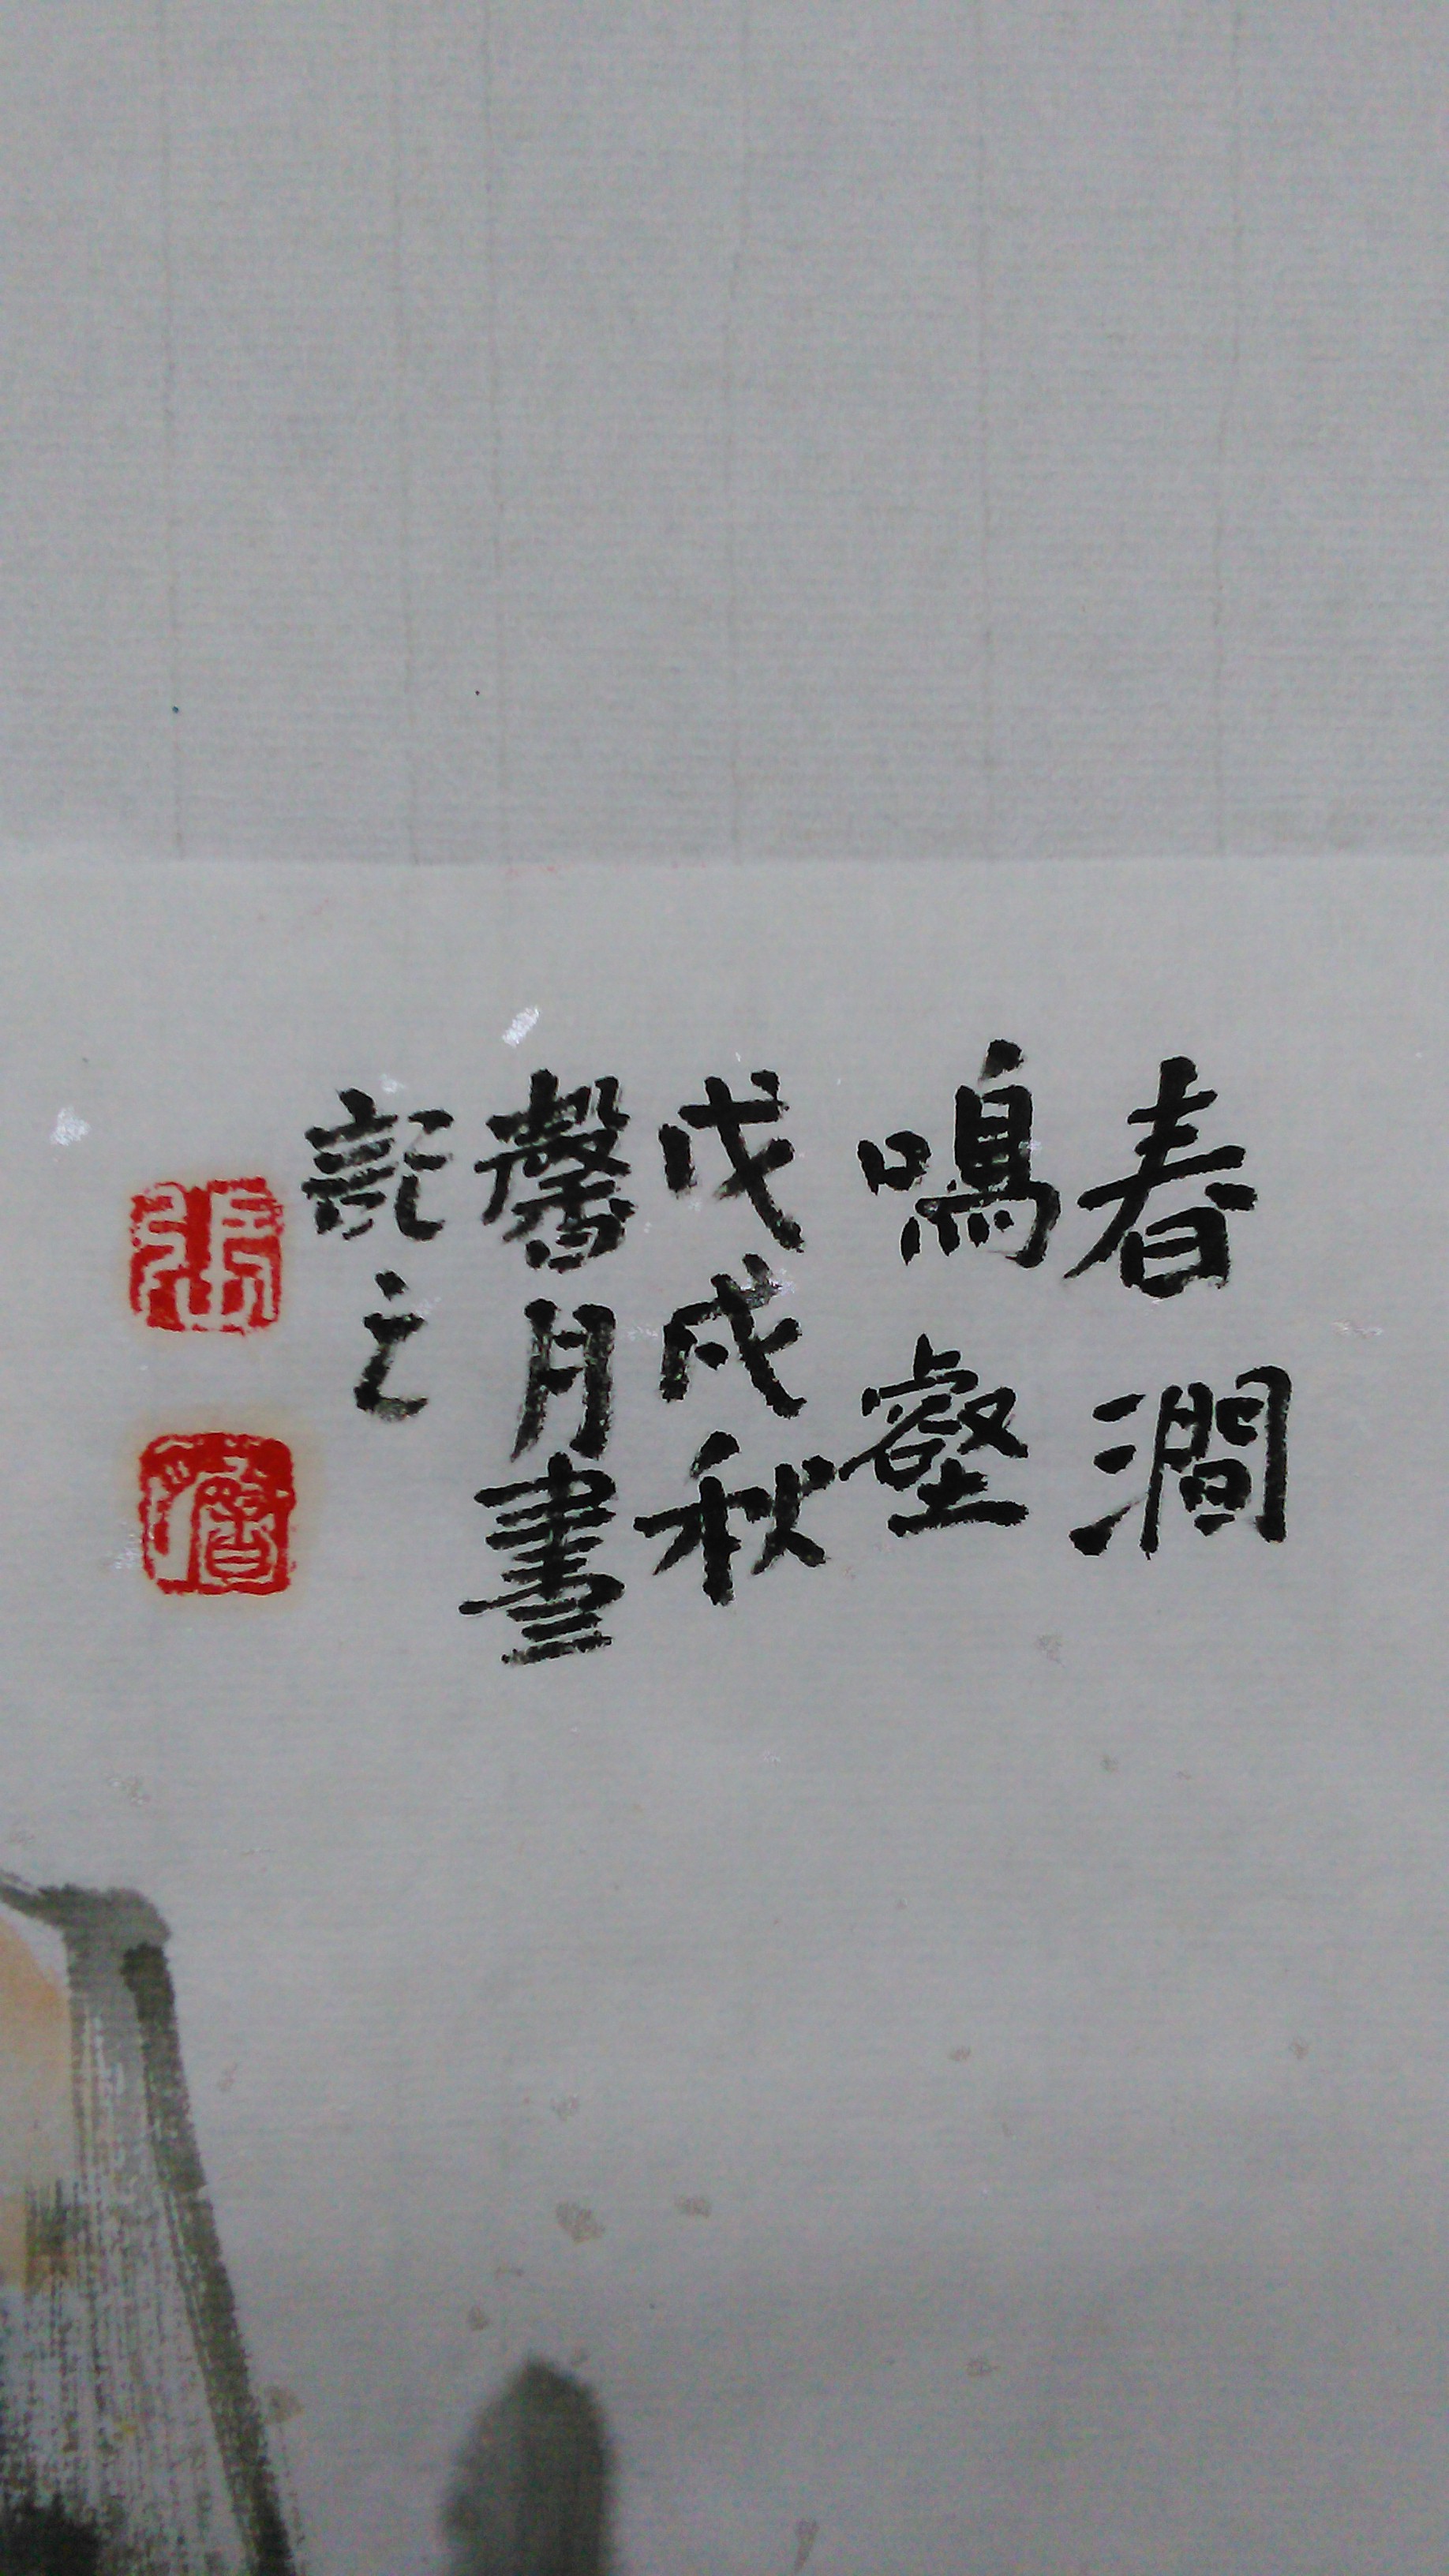 春澗
鳴壑
戊戌秋
馨月畫
記之
張